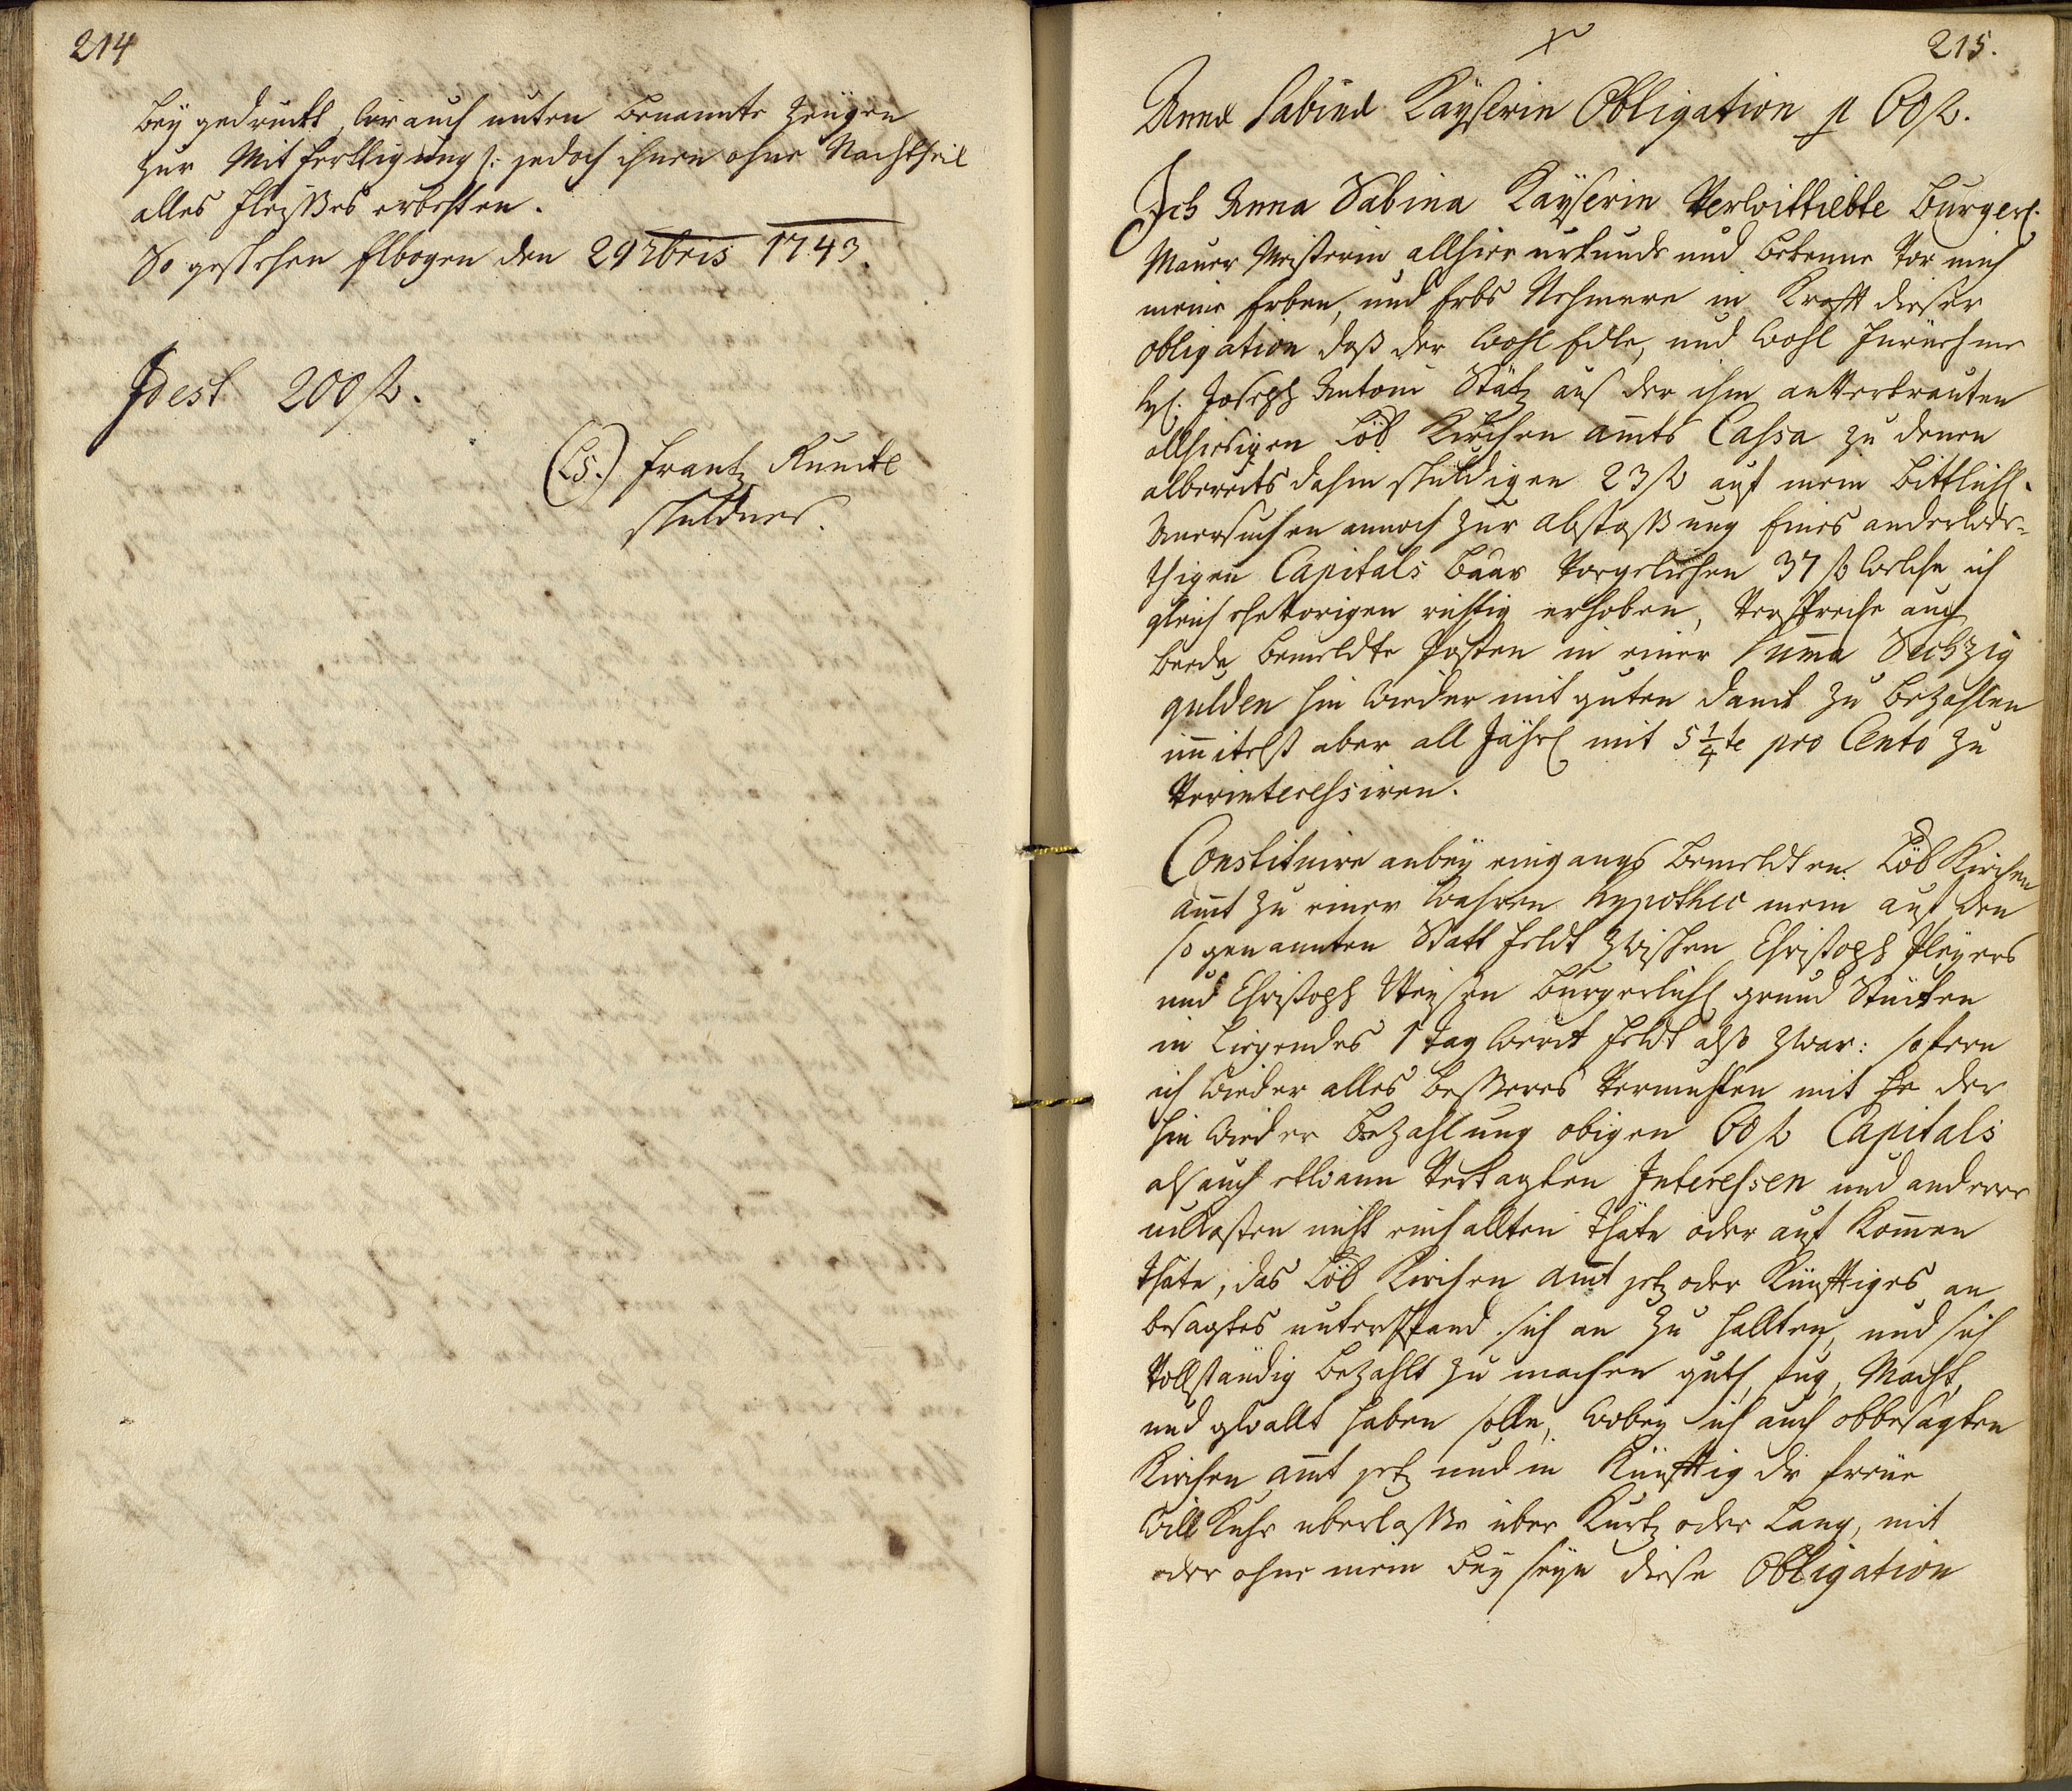 214
beÿ gedruckt, wie auch unten benannte Zeügen
zur Mitferttigung /: jedoch ihnen ohne Nachtheil
alles fleisses erbetten.
So geschehen Elbogen den 29 Xbris 1743.
Idest 200 f.
(LS.) Frantz Runckl
schuldner.
215.
Anna Sabina Kaÿserin Obligation p 60 f.
Ich Anna Sabina Kaÿserin Verwittiebte Burgerl.
Maurer Meisterin allhier urkunde und bekenne vor mich
meine Erben, und Erbs Nehmere in Krafft dieser
obligation daß der Wohl Edle, und Wohl Fürnehme
H. Joseph Antoni Stütz aus der ihm anvertrauten
allhiesigen Löb Kirchen amts Cassa zu denen
albereits dahin schuldigen 23 f auf mein bittlichl.
Anersuchen annoch zur abstossung Eines anderwer-
thigen Capitals baar vorgeliehen 37 f welche ich
gleich ehevorigen richtig erhoben, verspreche auch
beede bemeldte Posten in einer Summa Sechzig
gulden hin wieder mit guten danck zu bezahlen
imitelst aber all Jährl mit 5 1/4te pro Cento zu
verinteressiren.
Constituire anbeÿ eingangs bemeldten Löb Kirchen
amt zu einer wahren hypothec mein auf den
so genannten Statt feldt zwischen Christoph Pleyers
und Christoph burgerlichl grund Stücken
in Liegendes 1 tag werck feldt also zwar: sofern
ich wieder alles besseres vermuhten mit he der
hin wieder bezahlung obigen 60 f Capitals
als auch ettwann vertagten Interessen und anderer
unkosten nicht einhallten thäte oder auf Komen
thäte, das Löb Kirchen amt jetz oder Künfftiges an
besagtes unterpfand sich an zu hallten, und sich
vollständig bezahlt zu machen guth, fug, Macht,
und gewallt haben solle, wobeÿ ich auch obbesagten
Kirchen amt jetz und in Künfftig die freüe
Will Kuhr uberlasse über Kurtz oder Lang, mit
oder ohne mein beÿ seÿn diese Obligation